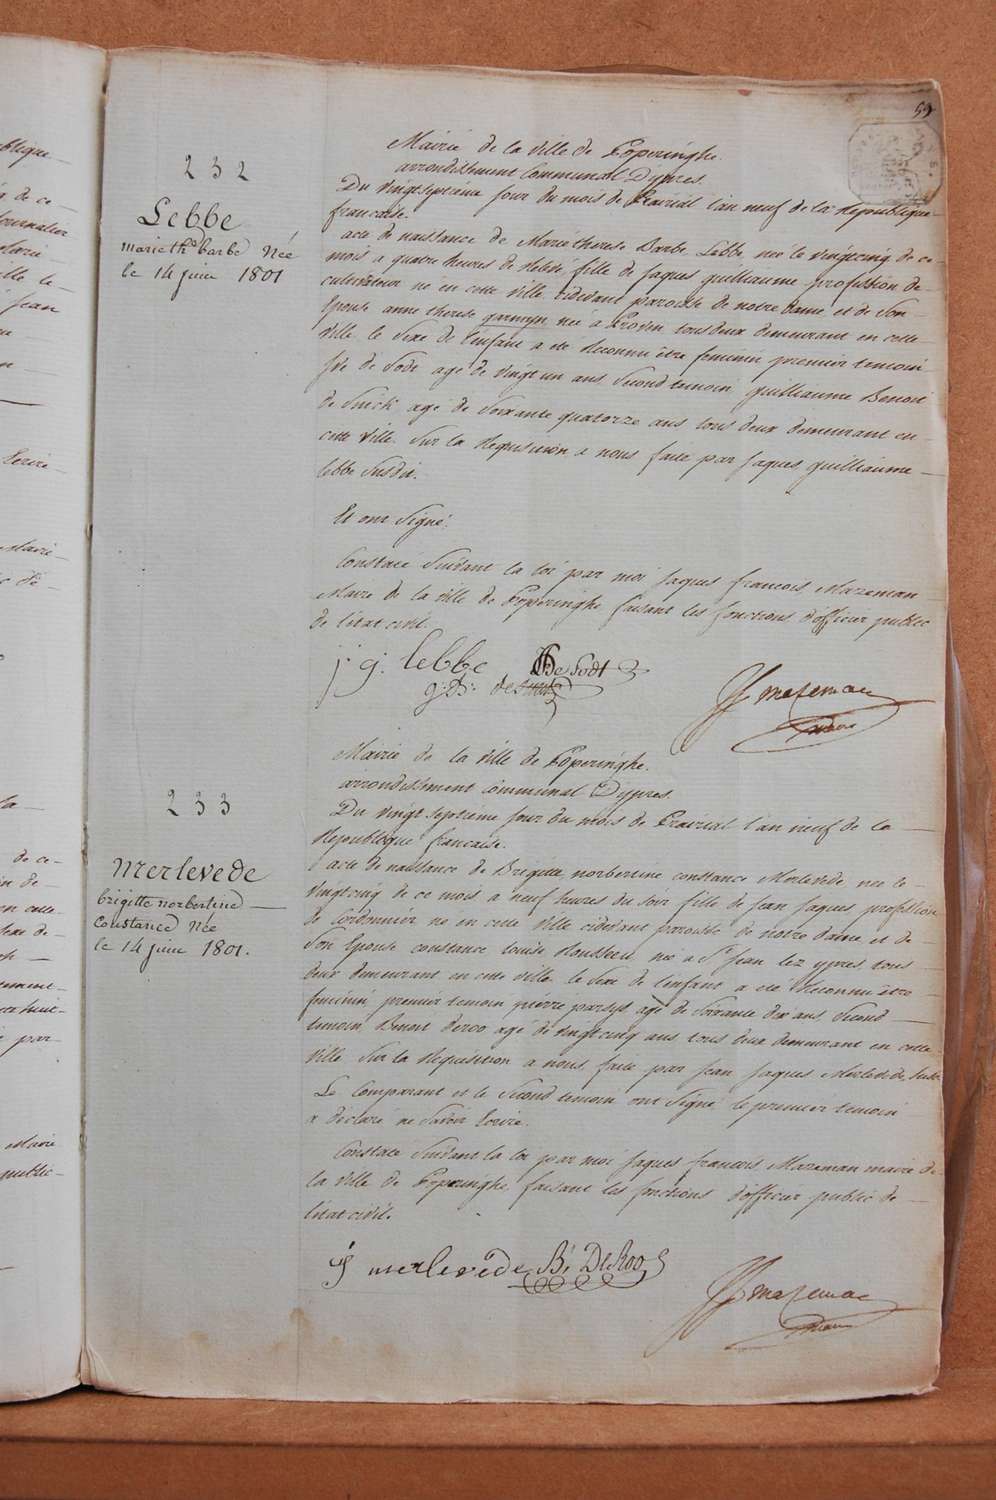 59
232
Lebbe
marie thr barbe Née
le 14 juin 1801
Mairie de la ville de Poperinghe.
arrondissement Communal Dypres.
Du vingt septieme jour du mois de Prairial l'an neuf de la Republique
francaise.
acte de naissance de Marie therese Barbe Lebbe née le vingtcinq de ce
mois a quatre heures de fille de jaques guilliaume profession de
cultivateur ne en cette ville cidevant paroisse de notre dame et de son
Epouse anne therese garmyn née a Proven tous deux demeurant en cette
ville le sexe de l'enfant a ete Reconnu être feminin premier temoin
de Sodt agé de vingt un ans Second temoin guilliaume Benoit
de agé de Soixante quatorze ans tous deux demeurant en
cette ville. Sur la Requisition a nous faite par jaques guilliaume
lebbe Susdit.
Et ont Signé.
Constaté Suivant la loi par moi jaques francois Mazeman
Maire de la ville de Poperinghe faisant les fonctions d'officier public
de l'etat civil.
j. g. lebbe De Sodt
g: b:
mazeman
maire
233
Merlevede
brigitte norbertine
Constance Née
le 14 juin 1801.
Mairie de la ville de Poperinghe.
arrondissement communal Dypres.
Du vingt septieme jour du mois de Prairial l'an neuf de la
Republique francaise.
acte de naissance de Brigitte norbertine constance Merlevede nee le
vingtcinq de ce mois a neuf heures du soir fille de jean jaques profession
de cordonnier ne en cette ville cidevant paroisse de notre dame et de
Son Epouse constance louise Rousseeu née a St jean lez ypres tous
deux demeurant en cette ville le sexe de l'enfant a ete Reconnu être
feminin premier temoin pierre parsys agé de Soixante dix ans Second
temoin Benoit Deroo agé de vingtcinq ans tous deux demeurant en cette
ville Sur la Requisition a nous faite par jean jaques Merlevede susdit
Le Comparant et le Second temoin ont Signé le premier temoin
a declaré ne Savoir Ecrire.
Constaté Suivant la loi par moi jaques francois Mazeman maire de
la ville de Poperinghe faisant les fonctions d'officier public de
l'etat civil.
merlevede B: DeRoo
mazeman
maire